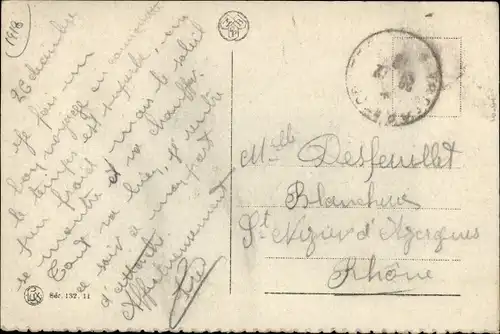 1918
26 décembre
Je fais un
bon voyage en camionnette
le temps est superbe, un
peu froid mais le soleil
se montre et va chauffer.
Tout va bien, je rentre
ce soir à mon port
d'attache.
Affectueusement
Mlle Desfeuillet
Blancheric
St Nizier d'Azergues
Rhône
Sér. 132, 11